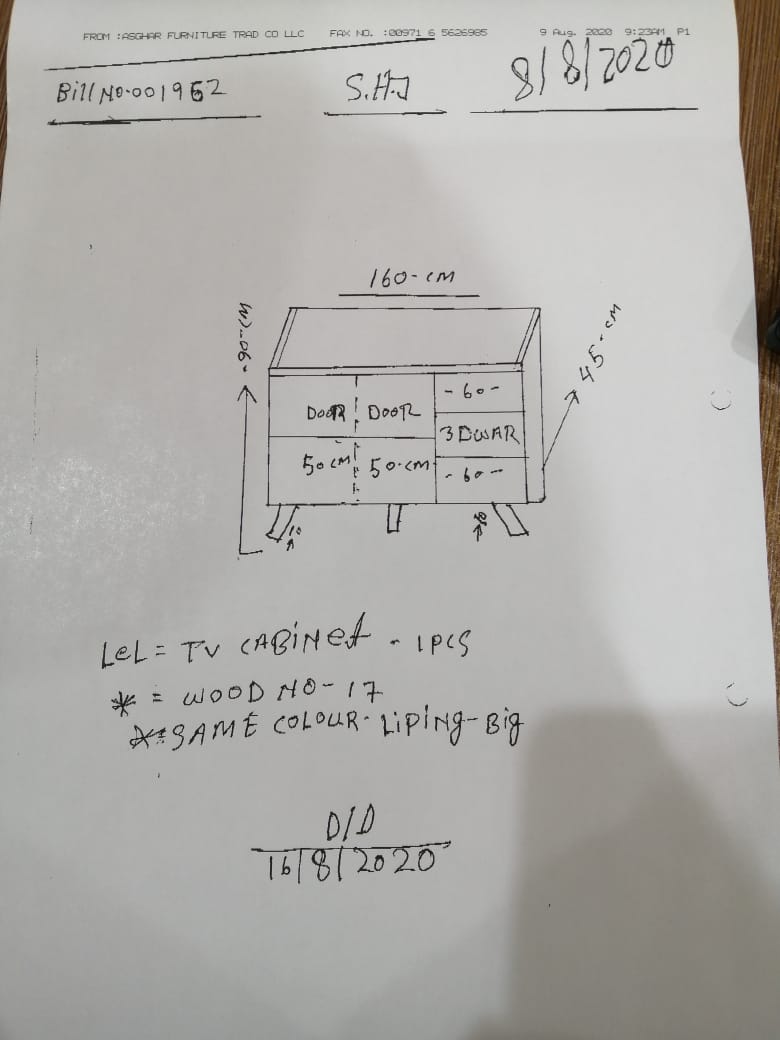 FROM :ASGHAR FURNITURE TRAD CO LLC FAX NO. :00971 6 5626985 9 Aug. 2020 9:23AM P1
Bill NO.001962 S.H.J 8/8/2020
160-CM
90-CM
45-CM
DOOR DOOR -60-
3 DWAR
50CM 50-CM -60-
10 10
LeL = TV CABiNet - 1PCS
* = WOOD NO-17
*=SAME COLOUR- LiPiNg-Big
D/D
16/8/2020